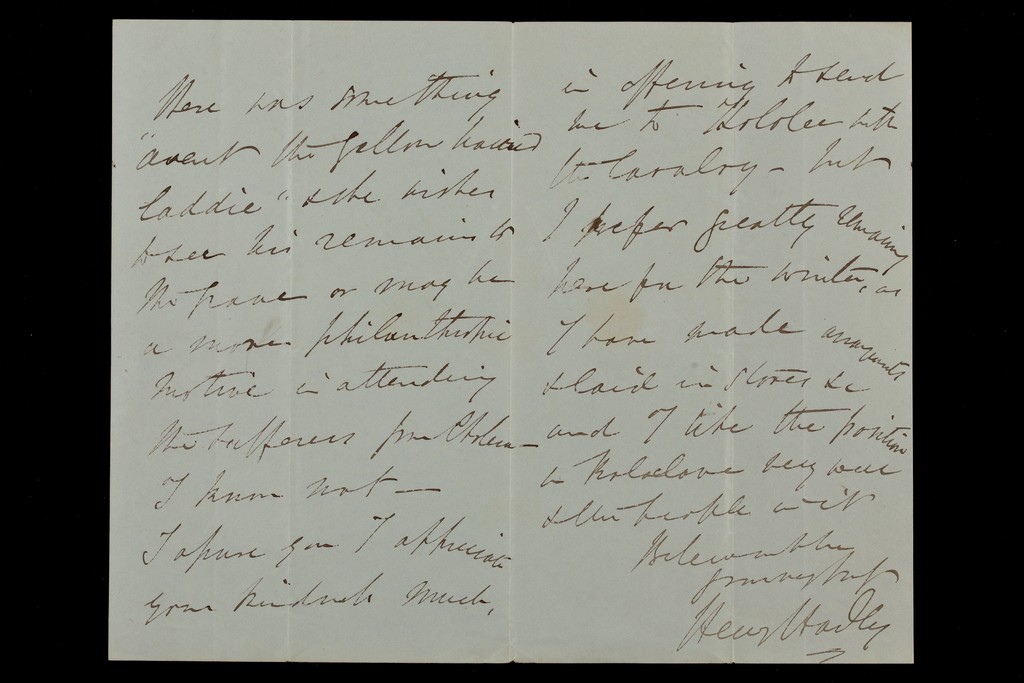 there was something
"avent the Yellow haired
laddie" & she wishes
to see his remains to
the grave or may be
a more philanthropic
motive in attending
the sufferers from Cholera –
I know not —
I assure you I appreciate
your kindness much,
in offering to send
me to with
the Cavalry – but
I prefer greatly remaining
here for the winter, as
I have made arrangments
& laid in Stores &c
and I like the position
in Balaclava very well
& the people in it
Believe me
yours very truly
Henry Hadley